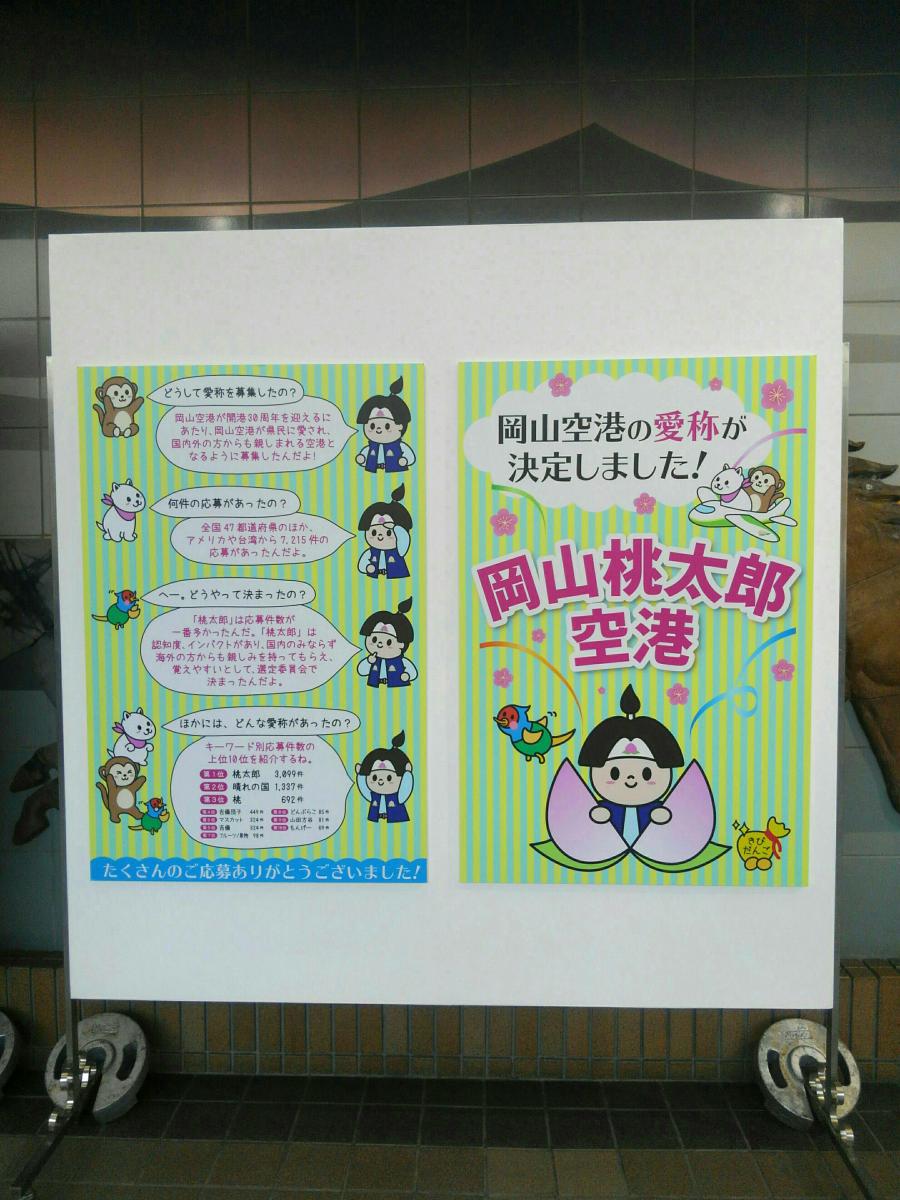 どうして愛称を募集したの？
岡山空港が開港30周年を迎えるに
あたり、岡山空港が県民に愛され、
国内外の方からも親しまれる空港と
なるように募集したんだよ！
何件の応募があったの？
全国47都道府県のほか、
アメリカや台湾から7,215件の
応募があったんだよ。
へー。どうやって決まったの？
「桃太郎」は応募件数が
一番多かったんだ。「桃太郎」は
認知度、インパクトがあり、国内のみならず
海外の方からも親しみを持ってもらえ、
覚えやすいとして、選定委員会で
決まったんだよ。
ほかには、どんな愛称があったの？
キーワード別応募件数の
上位10位を紹介するね。
第1位 桃太郎 3,099件
第2位 晴れの国 1,337件
第3位 桃 692件
第4位 吉備団子 449件
第5位 マスカット 324件
吉備 324件
第7位 フルーツ/果物 98件
第8位 どんぶらこ 85件
第9位 山田方谷 81件
もんげー 69件
たくさんのご応募ありがとうございました！
岡山空港の愛称が
決定しました！
岡山桃太郎
空港
きび
だんご